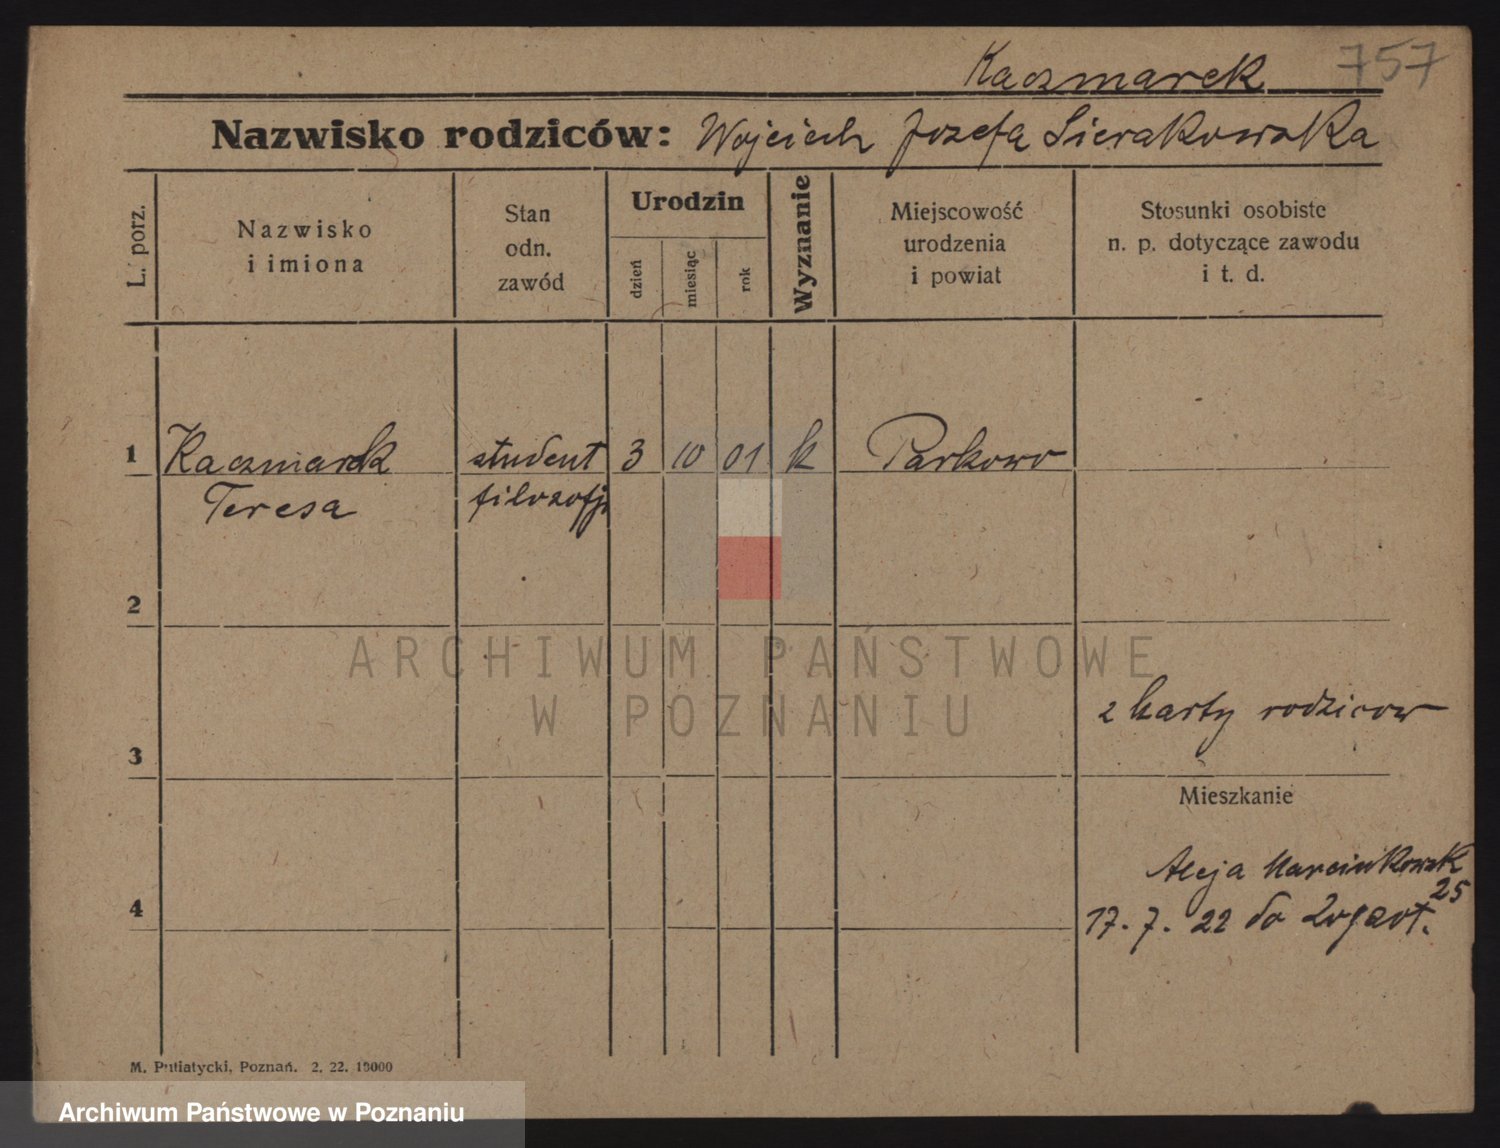 Kaczmarek 757
Nazwisko rodziców: Wojciech Jozefa Sierakowska
L. porz.
Nazwisko
i imiona
Stan
odn.
zawód
Urodzin
dzień
miesiąc
rok
Wyznanie
Miejscowość
urodzenia
i powiat
Stosunki osobiste
n. p. dotyczące zawodu
i t. d.
1 Kaczmarek student 3 10 01 k Parkowo
Teresa filozofji
2
ARCHIWUM PAŃSTWOWE
W POZNANIU
z karty rodzicow
3
Mieszkanie
Aleja Marcinkowsk
25
4
17. 7. 22 do
M. Putiatycki, Poznań. 2. 22. 10000
Archiwum Państwowe w Poznaniu